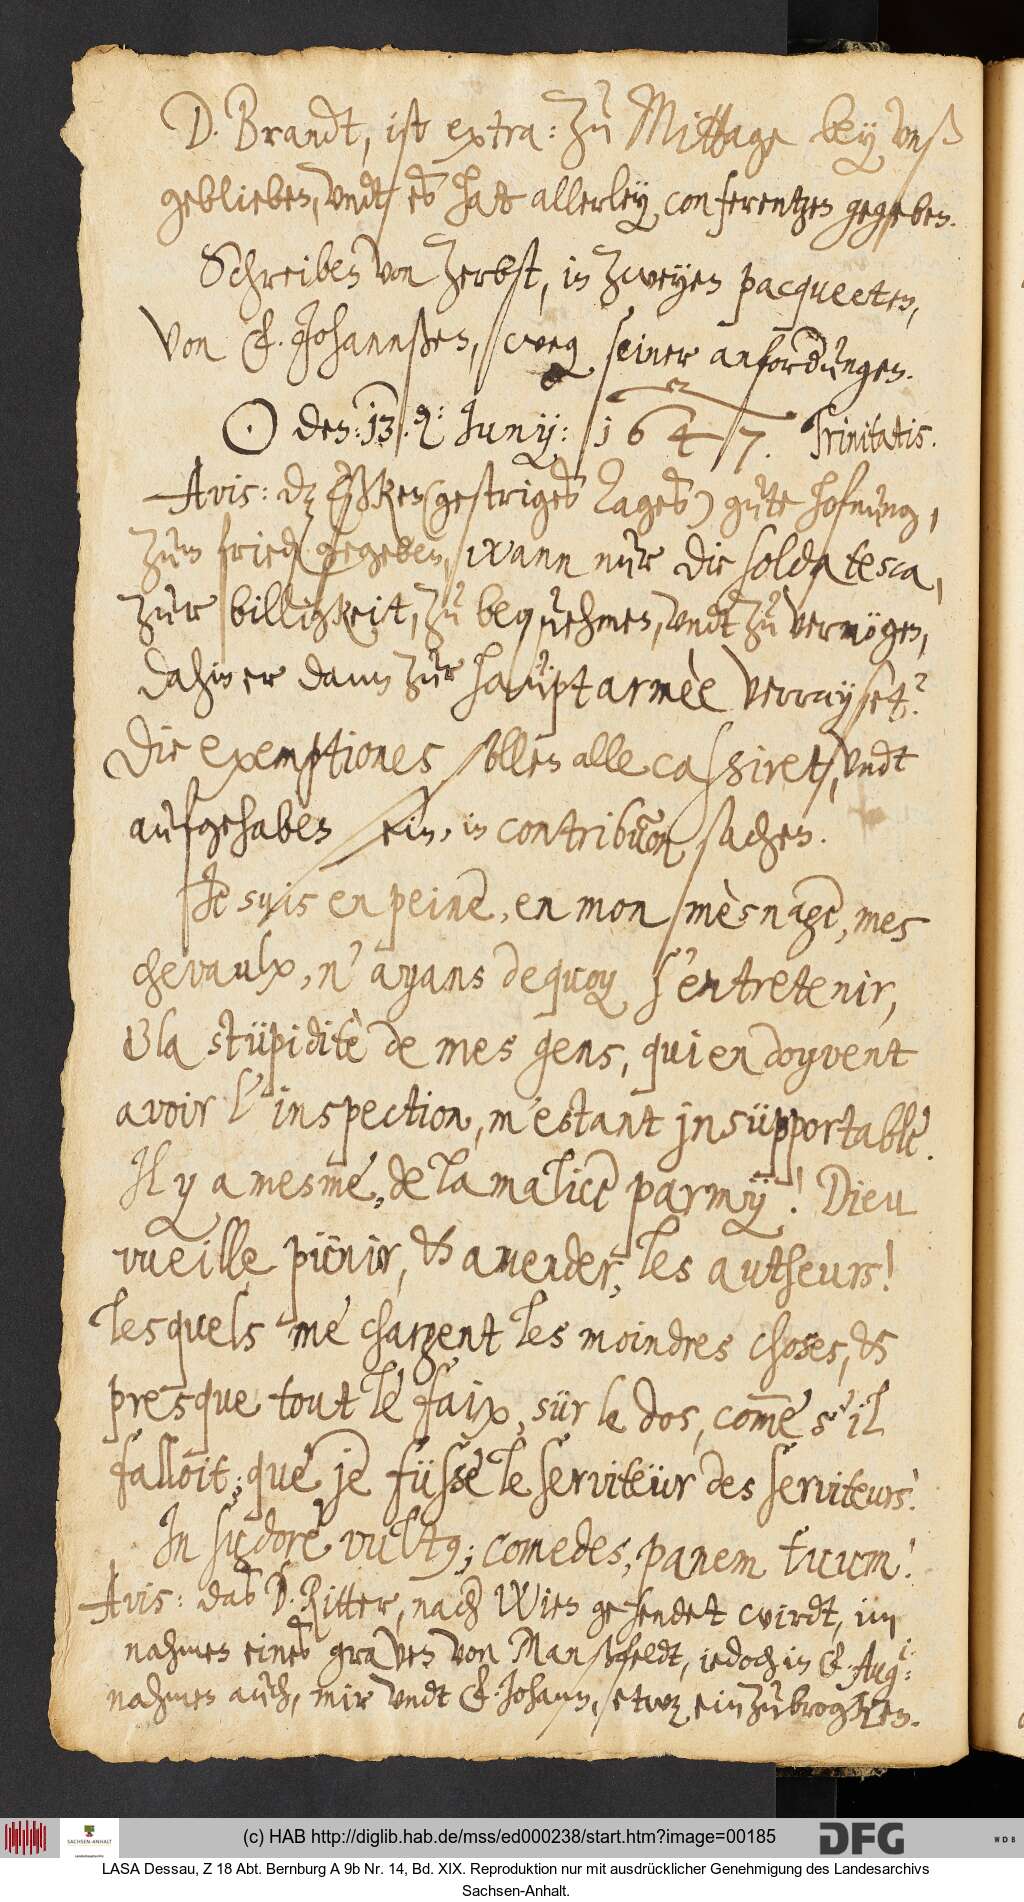 D. Brandt, ist extra: zu Mittage bey vnß
geblieben, vndt es hatt allerley conferentzen gegeben.
Schreiben von Zerbst, in zweyen pacqueeten,
von F. Johannßen, weg seiner anfordungen.
☉ den: 13. Junij: 1647. Trinitatis.
Avis: dz (gestriges Tages) gute hofnung,
zum fried gegeben, wann nur die soldatesca,
zur billigkeit, zu bequehmen, vndt zu vermögen,
dahin er dann zur haupt armèe verrayset?
Die exemptiones sollen alle cassiret, vndt
aufgehaben sein, in contribuon sachen.
Je suis en peine, en mon mèsnage, mes
chevaulx, n'ayans dequoy s'entretenir,
& la stüpiditè de mes gens, qui en doyvent
avoir l'inspection, m'estant jnsüpportable.
Il y a mesme, de la malice parmÿ! Dieu
vueille pünir, & amender, les autheurs!
lesquels me chargent les moindres choses, &
presque tout le faix, sür le dos, come s'il
falloit, que je füsse le serviteür des serviteurs.
In sudore vultq; comedes, panem tuum!
Avis: das D. Ritter, nach Wien gesendet wirdt, im
nahmen eines graven von Manßfeldt, iedoch in F. Augi:
nahmen auch, mir vndt F. Johann, etwz einzubrogken.
(c) HAB http://diglib.hab.de/mss/ed000238/start.htm?image=00185
SACHSEN-ANHALT
DFG
WDB
LASA Dessau, Z 18 Abt. Bernburg A 9b Nr. 14, Bd. XIX. Reproduktion nur mit ausdrücklicher Genehmigung des Landesarchivs
Sachsen-Anhalt.